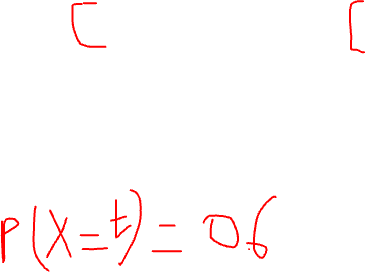 [ [
P(X=t)=0.6